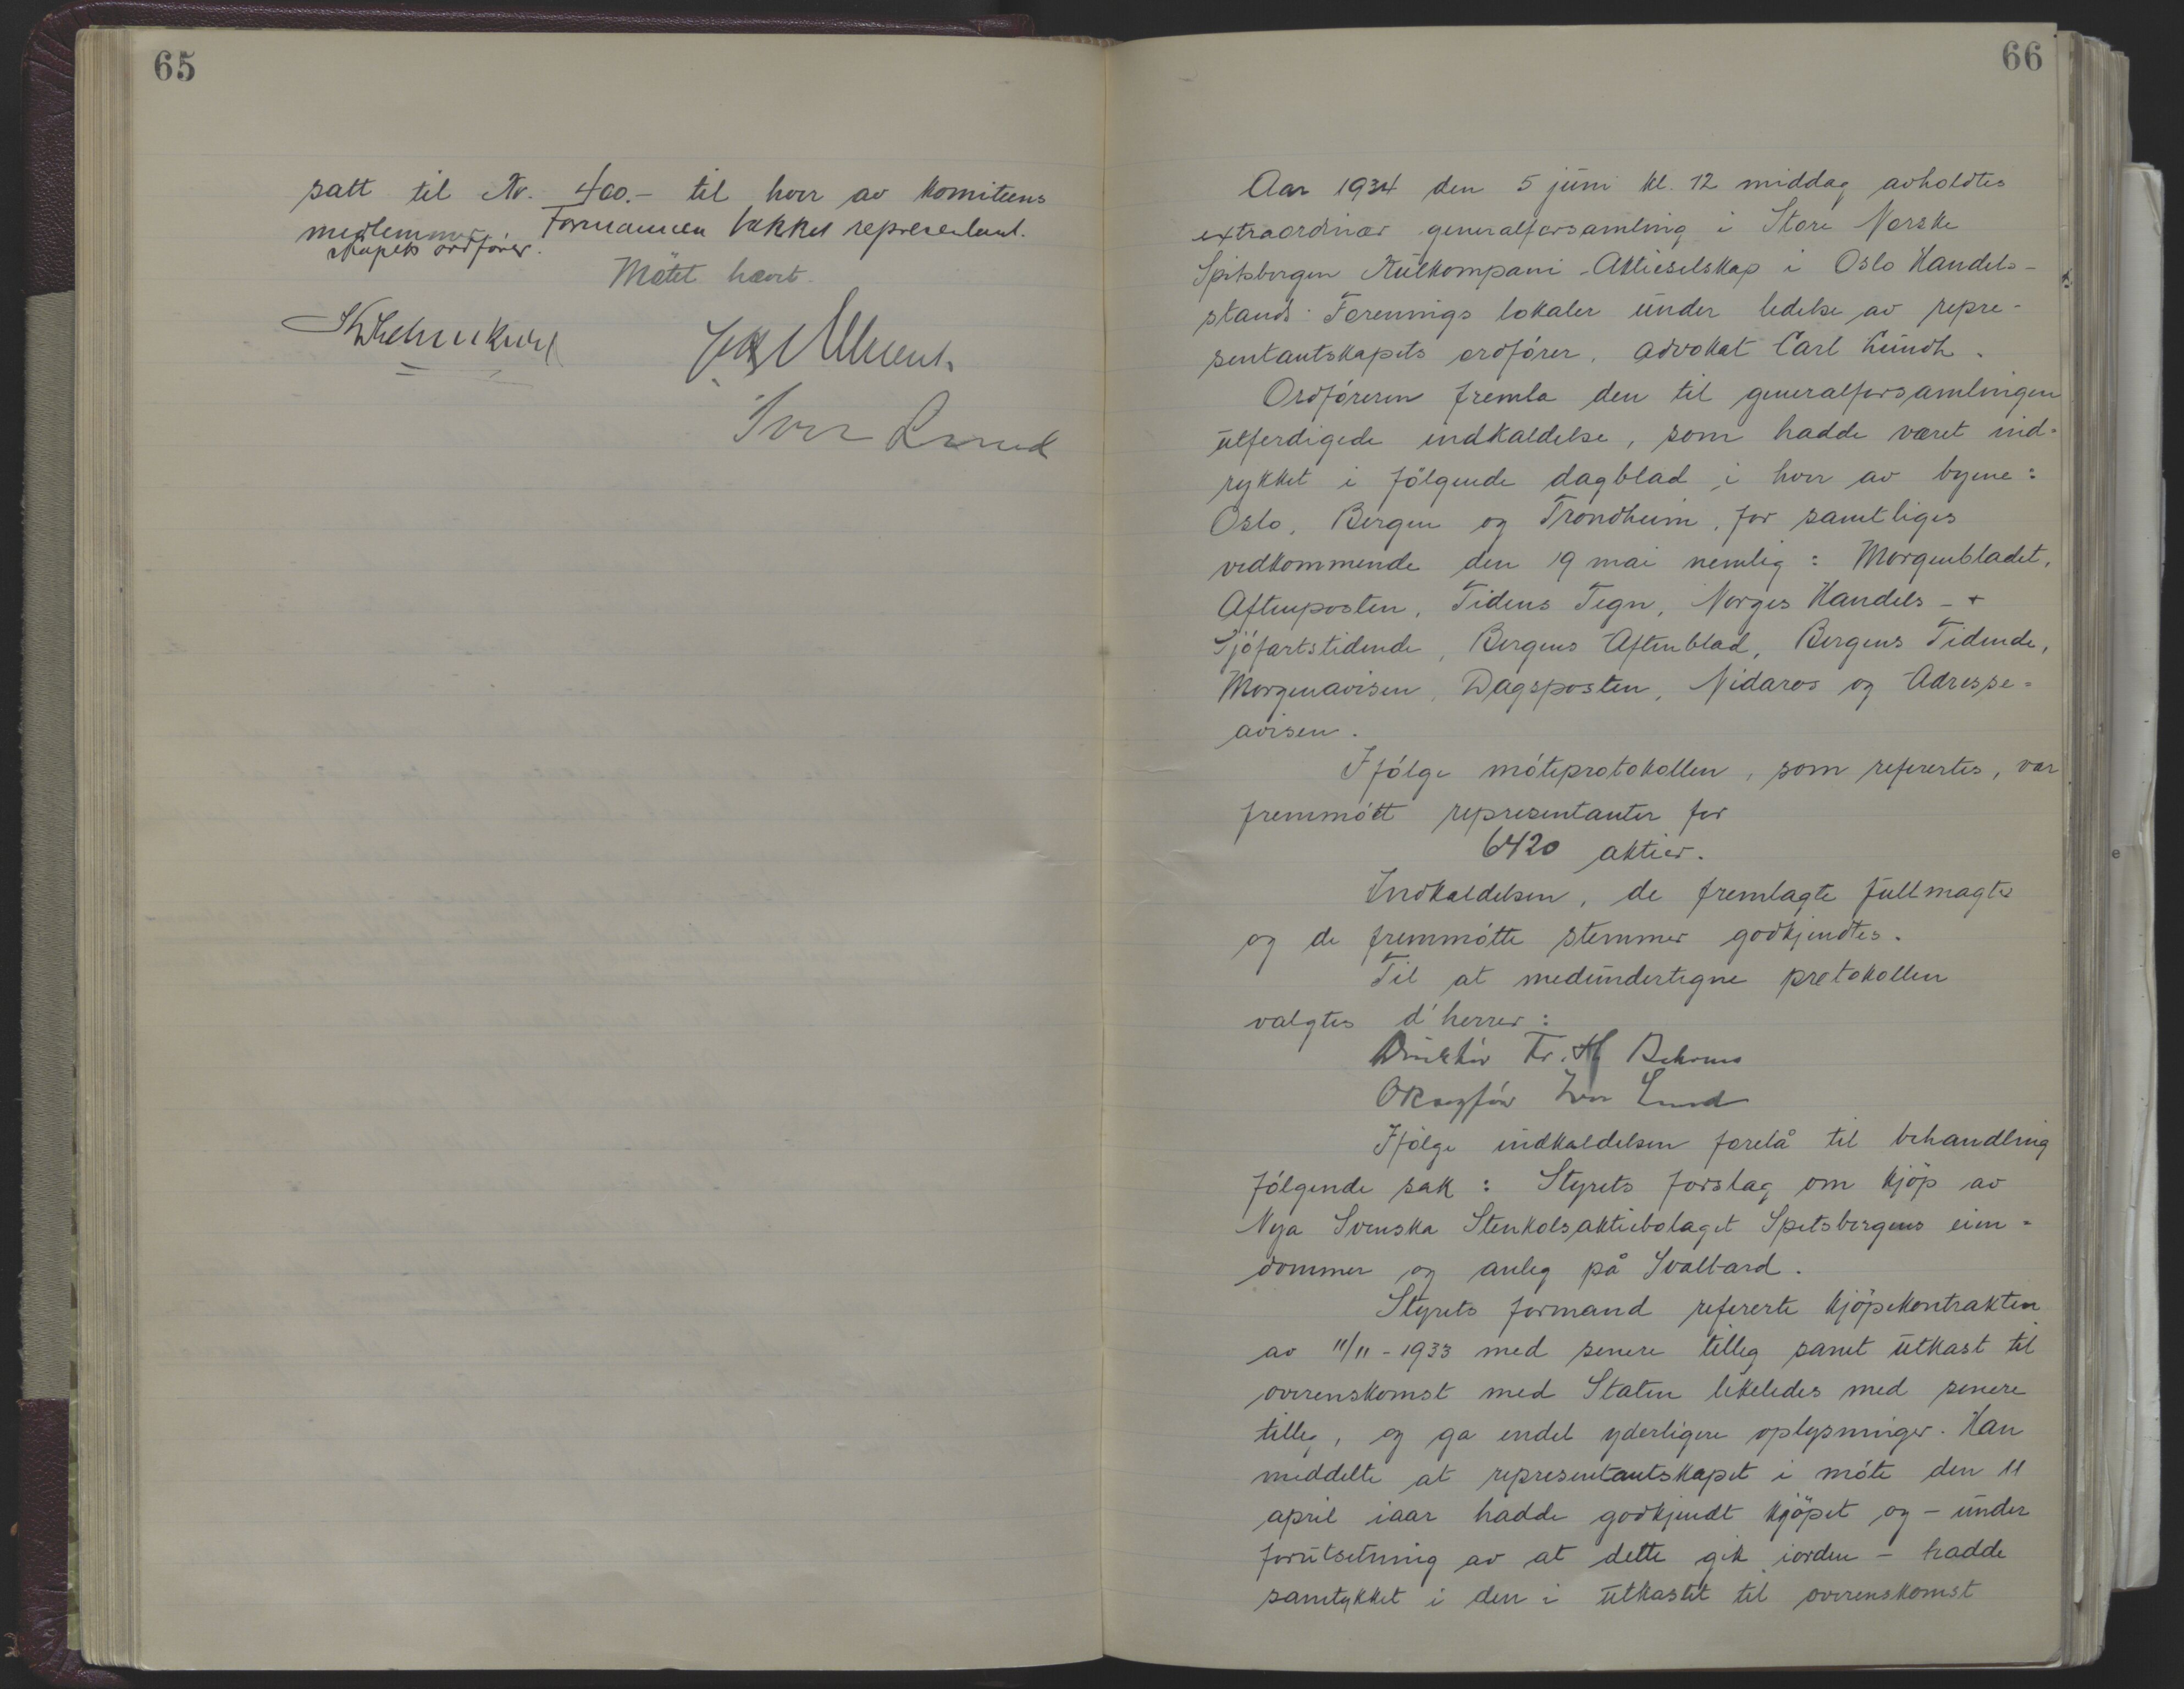 65
satt til Kr. 400.- til hver av komiteens
medlemmer. Formannen takket representant-
skapets ordfører.
Møtet hævet.
Iver Lund
66
Aar 1934 den 5 juni kl. 12 middag avholdtes
extraordinær generalforsamling i Store Norske
Spitsbergen Kulkompani - Aktieselskap i Oslo Handels-
stands Forenings lokaler under ledelse av repre-
sentantskapets ordfører, advokat Carl Lundh.
Ordføreren fremla den til generalforsamlingen
utferdigede indkaldelse, som hadde været ind-
rykket i følgende dagblad i hver av byene:
Oslo, Bergen og Trondheim, for samtliges
vedkommende den 19 mai nemlig: Morgenbladet,
Aftenposten, Tidens Tegn, Norges Handels- +
Sjøfartstidende, Bergens Aftenblad, Bergens Tidende,
Morgenavisen, Dagsposten, Nidaros og Adresse-
avisen.
Ifølge møteprotokollen, som refertes, var
fremmøtt representanter for
6420 aktier.
Indkaldelsen, de fremlagte fullmagter
og de fremmøtte stemmer godkjendtes.
Til at medundertegne protokollen
valgtes d'herrer:
Direktør Fr. Behrens
Iver Lund
Ifølge indkaldelsen forelå til behandling
følgende sak: Styrets forslag om kjøp av
Nya Svenska Stenkolsaktiebolaget Spetsbergens eien-
dommer og anleg på Svalbard.
Styrets formand refererte kjøpekontrakten
av 11/11 - 1933 med senere tilleg samt utkast til
overenskomst med Staten likeledes med senere
tilleg, og ga endel yderligere oplysninger. Han
meddelte at representantskapet i møte den 11
april iaar hadde godkjendt kjøpet og - under
forutsetning av at dette gik iorden - hadde
samtykket i den i utkastet til overenskomst